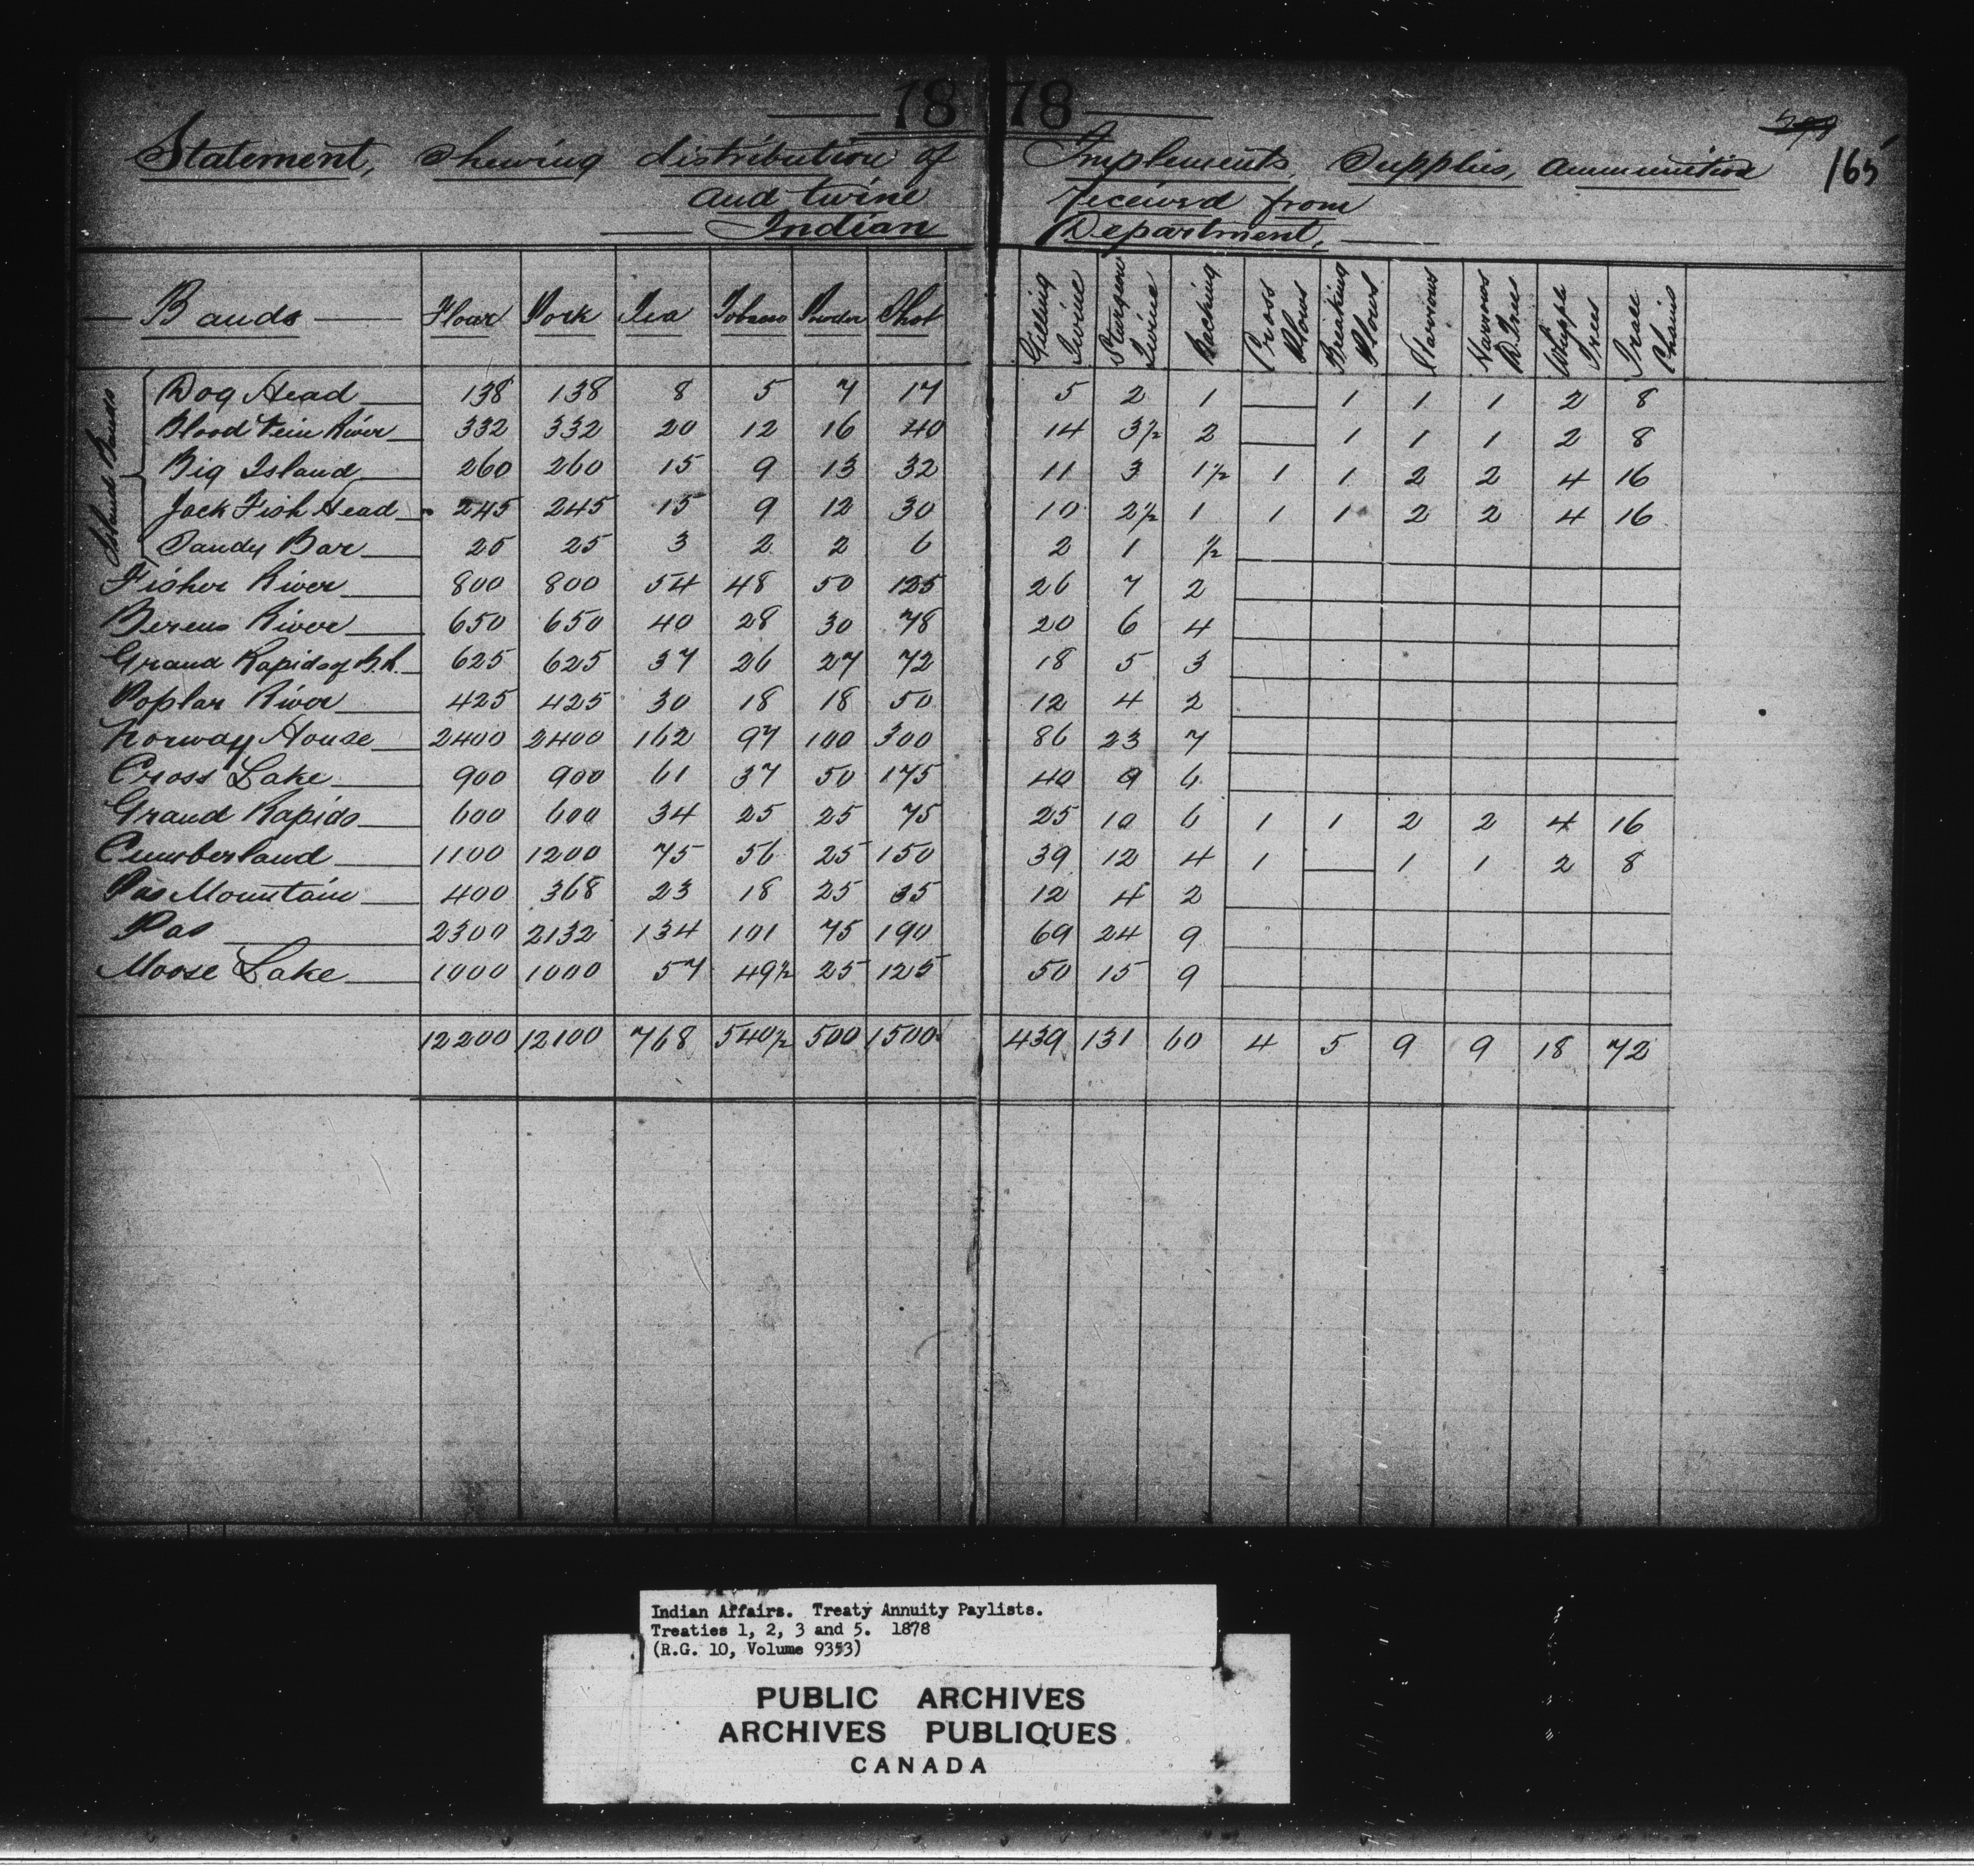 1878
Statement, Shewing distribution of Implements, Supplies, Ammunition 165
and twine received from
Indian Department,
Bands Flour Pork Tea Tobacco Powder Shot Gilling Twine Sturgeon Twine Backing Cross Plows Breaking Plows Harrows Harrows D. Trees Whipple Trees Trace Chains
Island Bands
Dog Head 138 138 8 5 7 17 5 2 1 — 1 1 1 2 8
Blood Vein River 332 332 20 12 16 40 14 3½ 2 — 1 1 1 2 8
Big Island 260 260 15 9 13 32 11 3 1½ 1 1 2 2 4 16
Jack Fish Head 245 245 15 9 12 30 10 2½ 1 1 1 2 2 4 16
Sandy Bar 25 25 3 2 2 6 2 1 ½
Fisher River 800 800 54 48 50 125 26 7 2
Berens River 650 650 40 28 30 78 20 6 4
Grand Rapids of B.R. 625 625 37 26 27 72 18 5 3
Poplar River 425 425 30 18 18 50 12 4 2
Norway House 2400 2400 162 97 100 300 86 23 7
Cross Lake 900 900 61 37 50 175 40 9 6
Grand Rapids 600 600 34 25 25 75 25 10 6 1 1 2 2 4 16
Cumberland 1100 1200 75 56 25 150 39 12 4 1 — 1 1 2 8
Pas Mountain 400 368 23 18 25 35 12 4 2
Pas 2300 2132 134 101 75 190 69 24 9
Moose Lake 1000 1000 57 49½ 25 125 50 15 9
12200 12100 768 540½ 500 1500 439 131 60 4 5 9 9 18 72
Indian Affairs. Treaty Annuity Paylists.
Treaties 1, 2, 3 and 5. 1878
(R.G. 10, Volume 9353)
PUBLIC ARCHIVES
ARCHIVES PUBLIQUES
CANADA